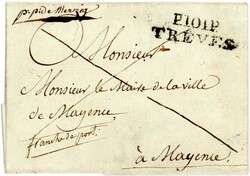 P.101.P.
TRÊVES
A Monsieur
Monsieur le Maire de la ville
de Mayence
franche de port.
à Mayence.